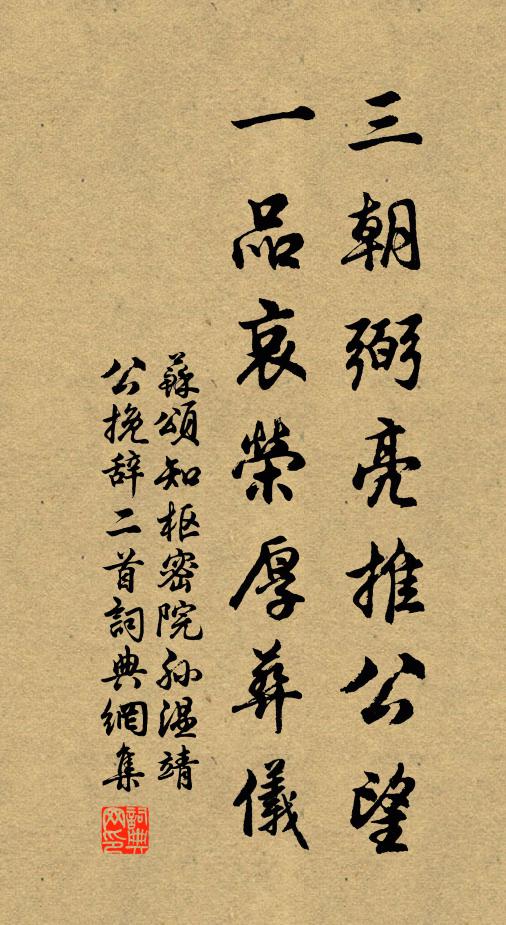 三朝弼亮推公望
一品哀榮厚葬儀
蘇頌知枢密院孙温靖
公挽辞二首詞典網集
詞典网印